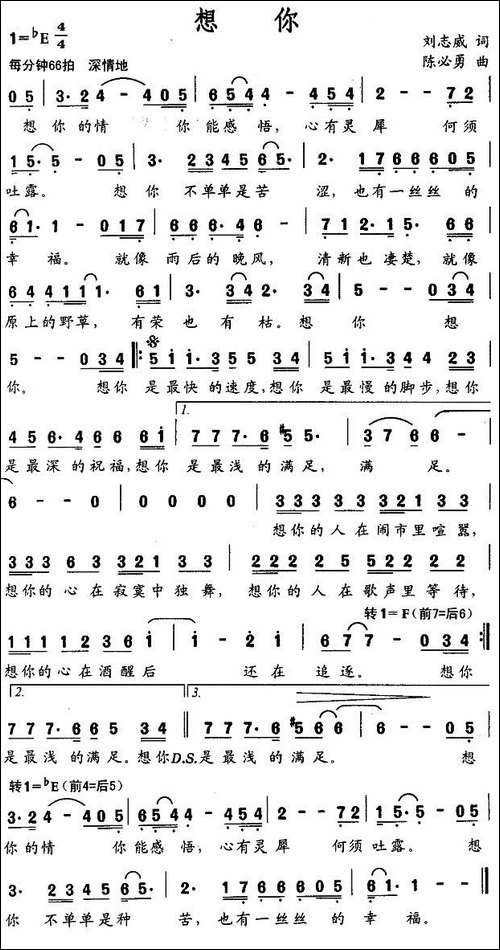 想 你
1=♭E 4/4
刘志威 词
每分钟66拍 深情地
陈必勇 曲
0 5 | 3· 2 4 - 4 0 5 | 6 5 4 4 - 4 5 4 | 2 - - 7 2 |
想 你 的 情 你 能 感 悟, 心 有 灵 犀 何 须
1 5· 5 - 0 5 | 3· 2 3 4 5 6 5· | 2· 1 7 6 6 6 0 5 |
吐 露。 想 你 不 单 单 是 苦 涩, 也 有 一 丝 丝 的
6 1· 1 - 0 1 7 | 6 6 6· 4 6 - | 7 1 2· 1 5· 6 6 |
幸 福。 就 像 雨 后 的 晚 风, 清 新 也 凄 楚, 就 像
6 4 4 1 1 1· 6 1 | 3· 3 4 2· 3 4 | 5 - - 0 3 4 |
原 上 的 野 草, 有 荣 也 有 枯。 想 你 想
5 - - 0 3 4 |: 5 i i· 3 5 5 3 4 | 5 i i· 3 4 4 2 3 |
你。 想 你 是 最 快 的 速 度, 想 你 是 最 慢 的 脚 步, 想 你
1.
4 5 6· 4 6 6 6 i | 7 7 7· 6 #5 5· | 3 7 6 6 - |
是 最 深 的 祝 福, 想 你 是 最 浅 的 满 足, 满 足。
6 - - 0 | 0 0 0 0 | 3 3 3 3 3 3 2 1 3 3 |
想 你 的 人 在 闹 市 里 喧 嚣,
3 3 3 6 3 3 2 1 3 3 | 2 2 2 2 5 5 2 2 2 |
想 你 的 心 在 寂 寞 中 独 舞, 想 你 的 人 在 歌 声 里 等 待,
转1=F(前7=后6)
1 1 1 1 2 3 6 i | i - 2 i | 6 7 7 - 0 3 4 :|
想 你 的 心 在 酒 醒 后 还 在 追 逐。 想 你
2. 3.
7 7 7· 6 6 5 3 4 || 7 7 7· 6 #5 6 6 | 6 - - 0 5 |
是 最 浅 的 满 足。 想 你 D.S. 是 最 浅 的 满 足。 想
转1=♭E(前4=后5)
3· 2 4 - 4 0 5 | 6 5 4 4 - 4 5 4 | 2 - - 7 2 | 1 5· 5 - 0 5 |
你 的 情 你 能 感 悟, 心 有 灵 犀 何 须 吐 露。 想
3· 2 3 4 5 6 5· | 2· 1 7 6 6 6 0 5 | 6 1· 1 - - ‖
你 不 单 单 是 种 苦, 也 有 一 丝 丝 的 幸 福。